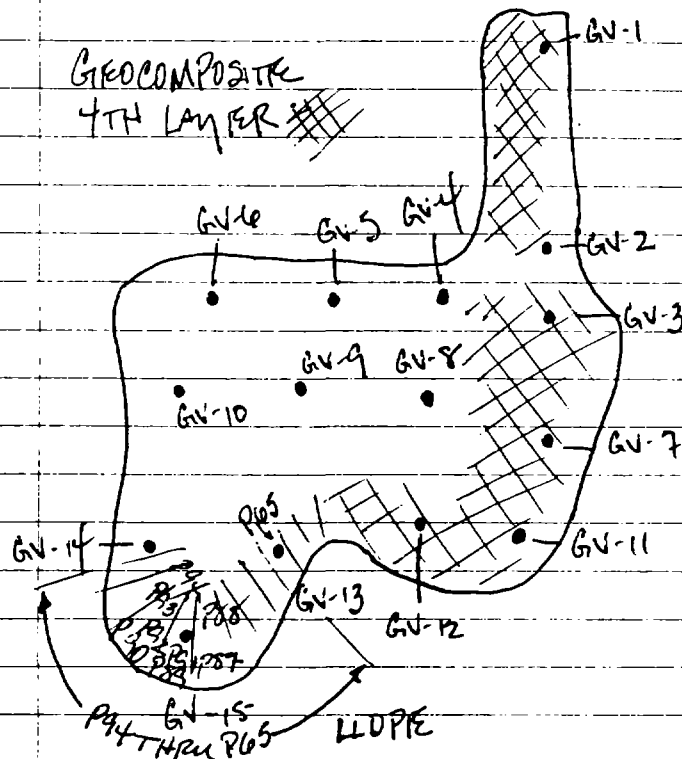 GV-1
GEOCOMPOSITE
4TH LAYER
GV-6
GV-5
GV-4
GV-2
GV-3
GV-9
GV-8
GV-10
GV-7
P65
GV-14
GV-11
GV-13
P88
GV-12
P87
GV-15
P94 THRU P65
LLDPE